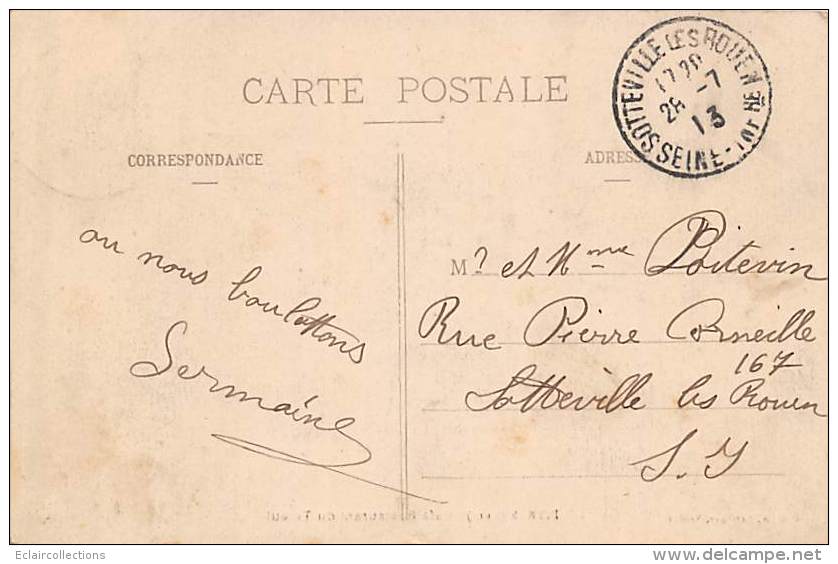 CARTE POSTALE
SOTTEVILLE LES ROUEN
17 20
26 -7
13
SEINE-INF RE
CORRESPONDANCE
ADRESSE
ou nous boulottons
Germaine
M r et Mme Poitevin
Rue Pierre Corneille
167
Sotteville les Rouen
S. I
Eclaircollections
www.delcampe.net